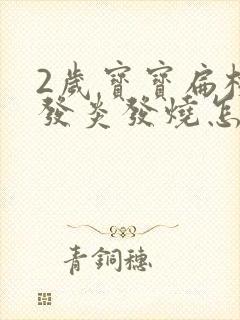 2歲寶寶扁
發炎發燒怎
青銅穗